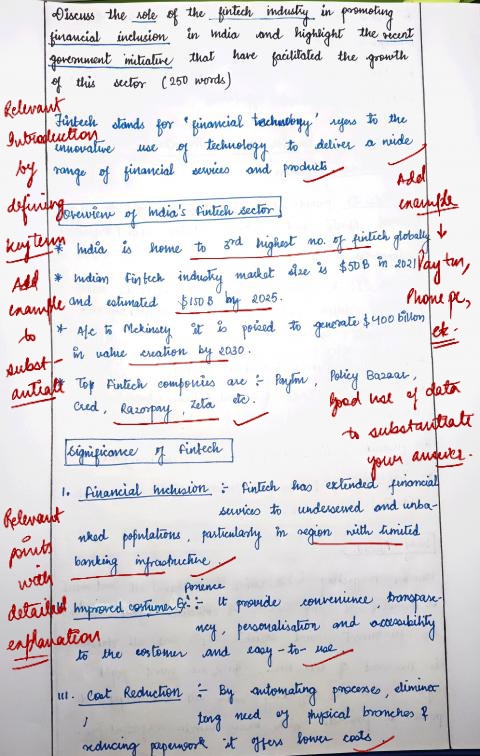 Discuss the role of the fintech industry in promoting
financial inclusion in India and highlight the recent
government initiative that have facilitated the growth
of this sector (250 words)
Fintech stands for 'financial technology' refers to the
innovative use of technology to deliver a wide
range of financial services and products
Relevant
Introduction
by
defining
key term
Add
example
to
subst-
antiate
Add
example
↓
Paytm,
Phone pe,
etc.
Overview of India's Fintech sector
* India is home to 3rd highest no. of fintech globally
* Indian Fintech industry market size is $50B in 2021
and estimated $150B by 2025.
* A/c to Mckinsey it is poised to generate $400 billion
in value creation by 2030.
* Top Fintech companies are :- Paytm, Policy Bazaar,
Cred, Razorpay, Zeta etc.
Good use of data
to substantiate
your answer.
Significance of Fintech
I. Financial Inclusion :- Fintech has extended financial
services to underserved and unba-
nked populations, particularly in region with limited
banking infrastructure.
Relevant
points
with
detailed
explanation
Improved costumer Ex-
perience
:- It provide convenience, transpare-
ncy, personalisation and accessibility
to the costomer and easy-to-use.
III. Cost Reduction :- By automating processes, elimina-
ting need of physical branches &
reducing paperwork it offers lower costs